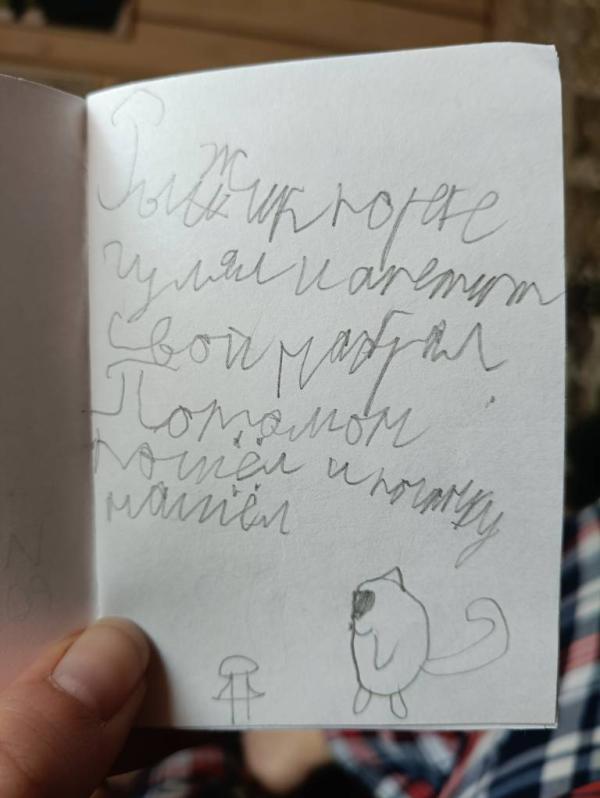 Рыжик
гулял и апетит
свой набрал
Потом он
пошёл и поганку
нашёл